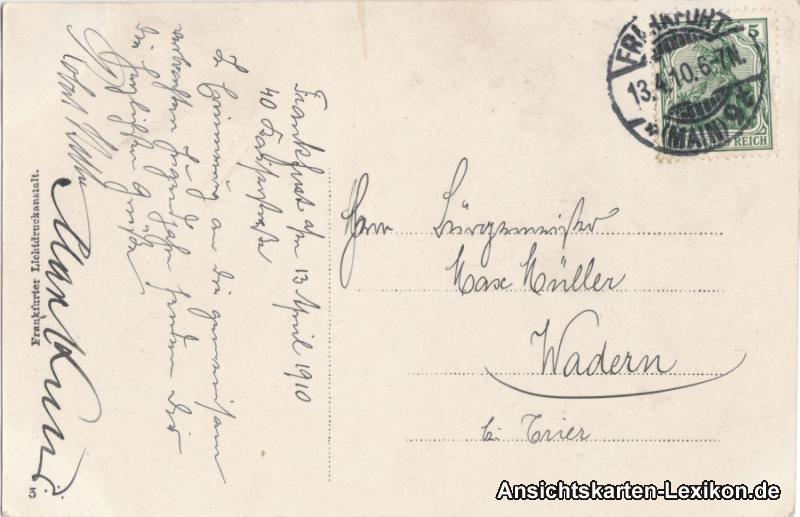 Frankfurt a/m 13 April 1910
40 Kaiserstraße
Zu Erinnerung an die gemeinsam
verbrachten Jugendjahre senden Dir
die herzlichsten Grüße
Frankfurter Lichtdruckanstalt.
3
FRANKFURT
13.4.10.6-7N.
* (MAIN) 9
5
REICH
Herrn Bürgermeister
Max Müller
Wadern
bei Trier
Ansichtskarten-Lexikon.de